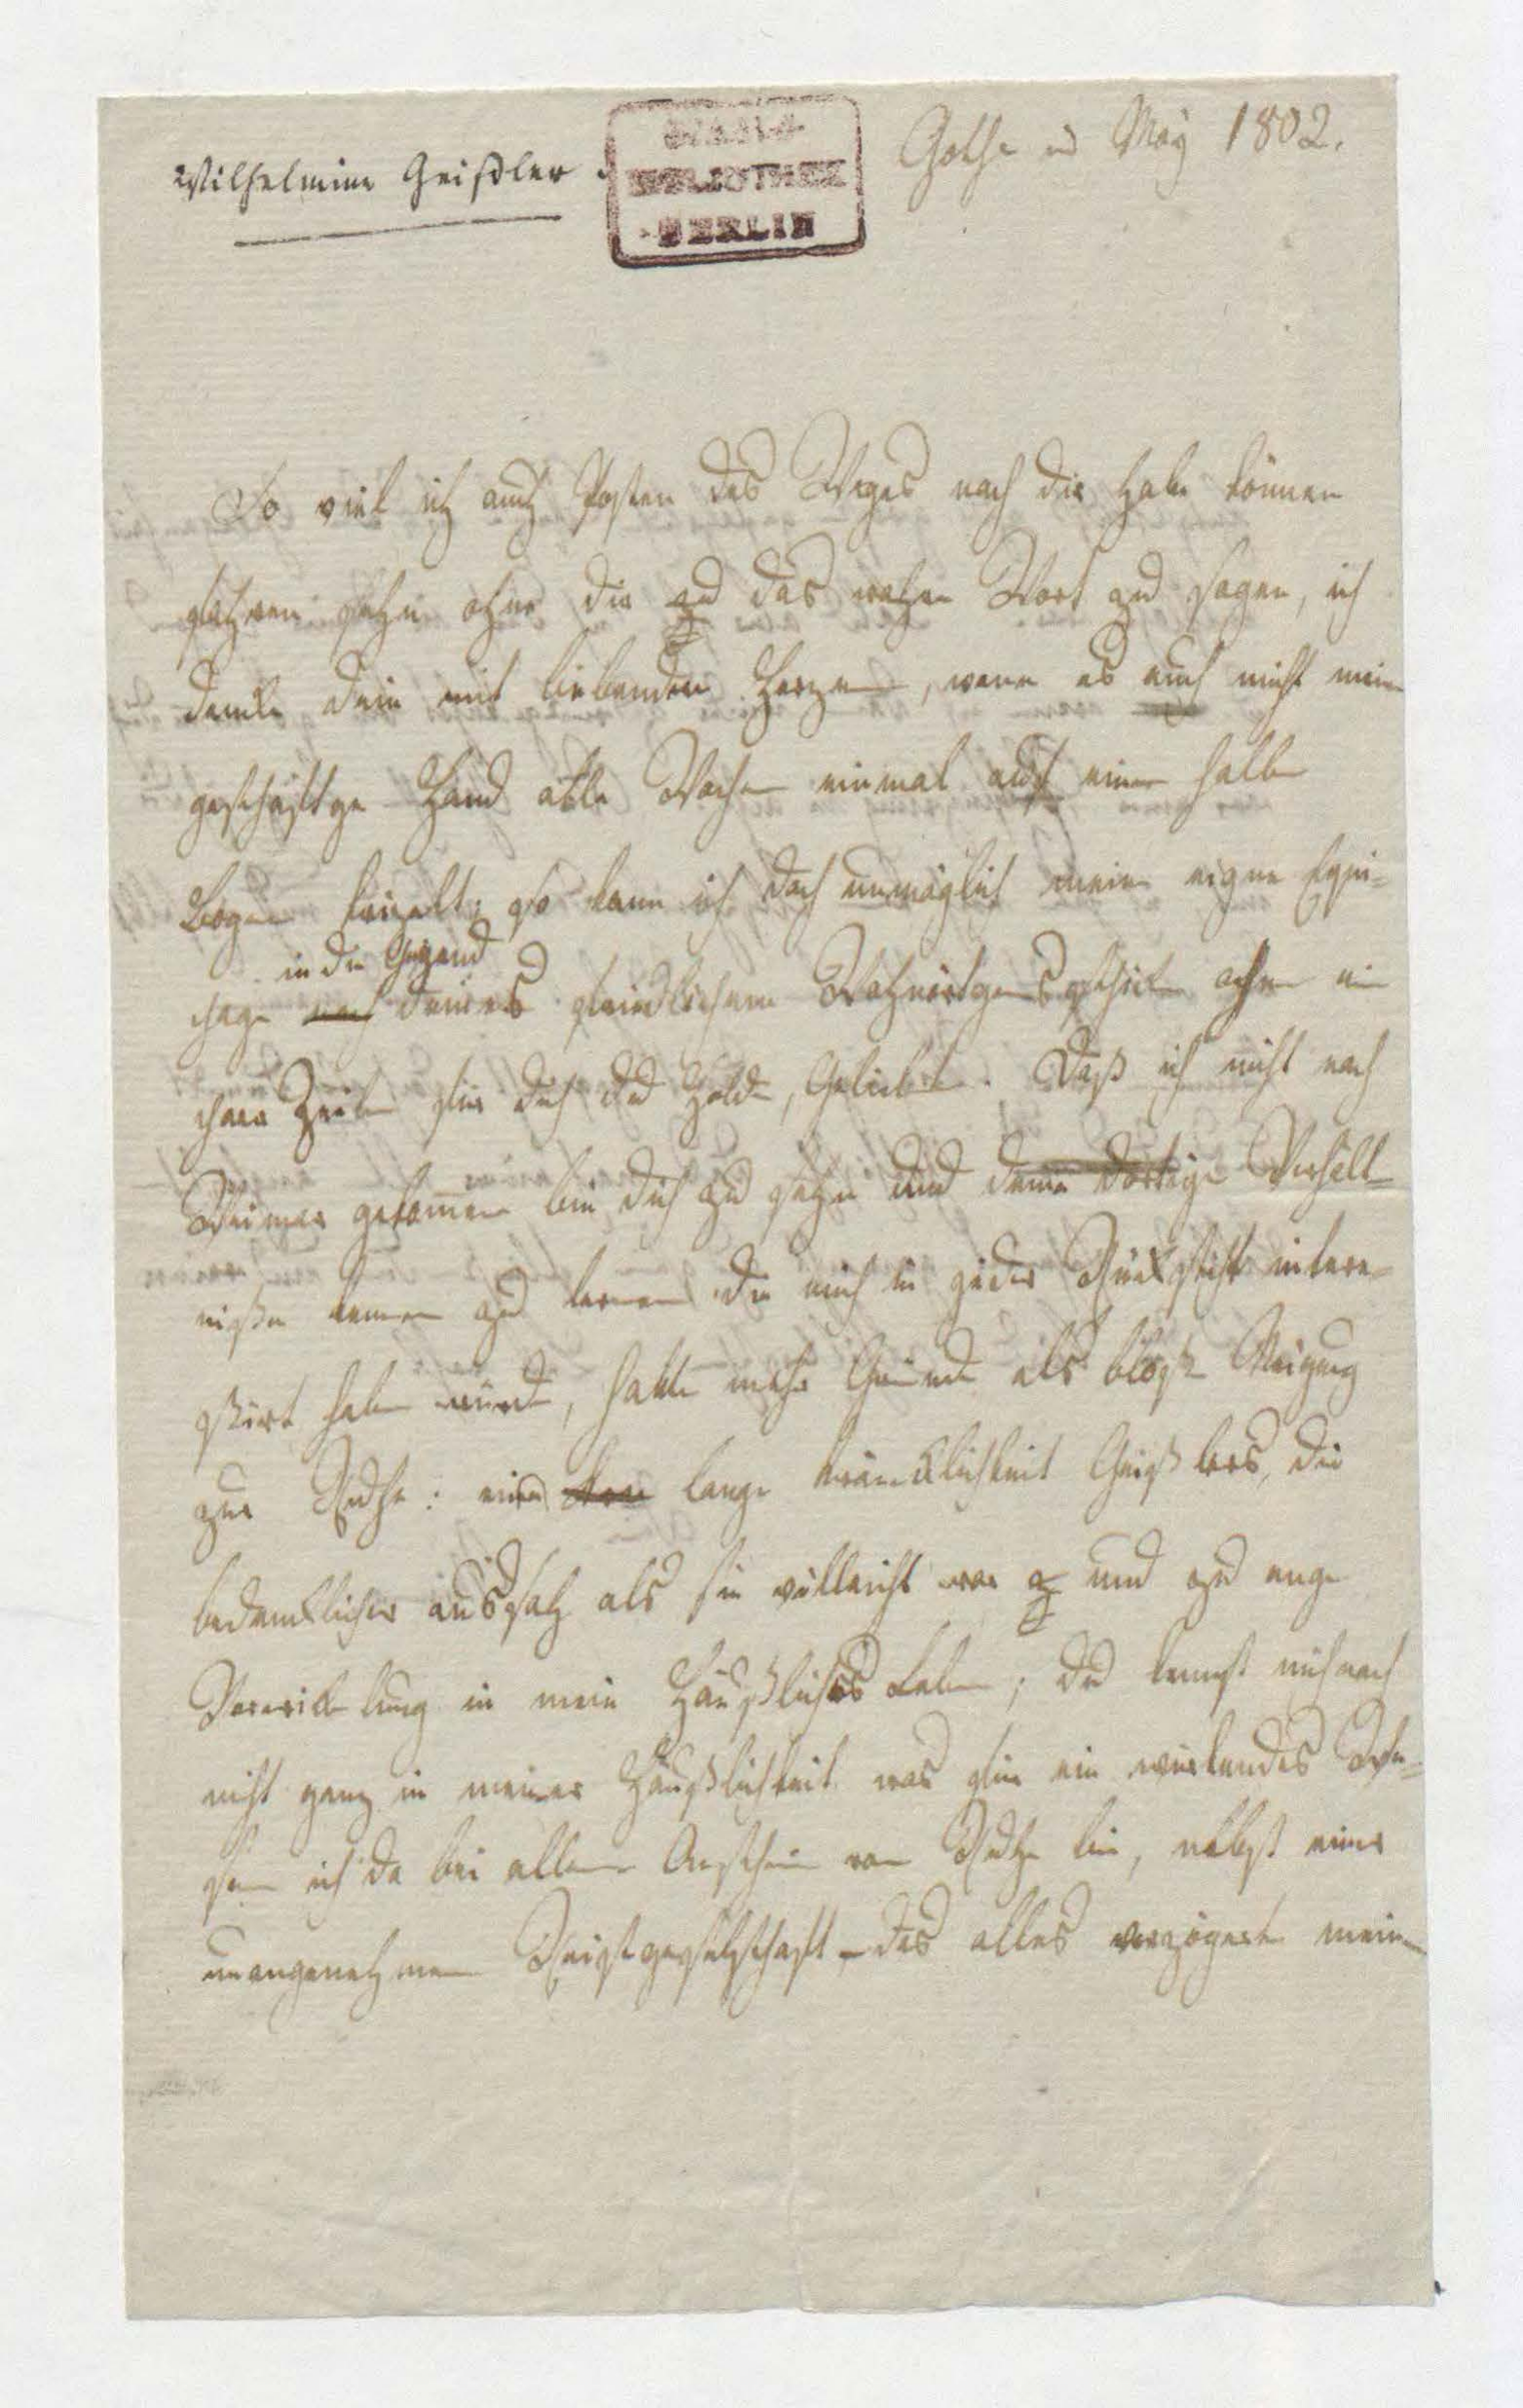 Wilhelmine Geißler.
BIBLIOTHEK
BERLIN
Gotha d May 1802.
So viel ich auch Posten des Weges nach dir habe können
fahren sehn ohne dir zu das wahre Wort zu sagen, ich
denke dein mit liebenden Herzen, wenn es auch nicht meine
geschäftge Hand alle Wochen einmal auf einen halben
Bogen krizelt; so kann ich doch unmöglich meine eigne Equi-
in die Gegend
page nach deines freundlichen Wohnörtgens schicken ohne ein
paar Zeilen für dich du Holde, Geliebte. Daß ich nicht nach
Weimar gekommen bin dich zu sehn und deine dortige Verhält-
niße kennen zu lernen die mich in jeder Rücksicht intere-
ßirt haben würde, hatte mehr Gründe als bloße Neigung
zur Ruhe: eine lange Kräncklichkeit Geißlers, die
bedencklicher aussah als sie villeicht war und zu enge
Verwickelung in mein Häußliches Leben; du kennst mich noch
nicht ganz in meiner Häußlichkeit was für ein würkendes We-
sen ich da bei allem Anschein von Ruhe bin, nebst einer
unangenehmen Reisegesellschaft – das alles verzögerte meine